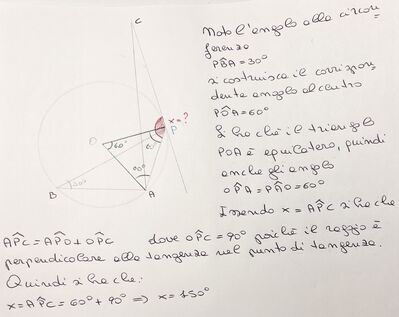 C
Noto l'angolo alla circon
ferenza
PB̂A = 30°
si costruisce il corrispon
dente angolo al centro
PÔA = 60°
Si ha che il triangolo
POA è equilatero, quindi
anche gli angoli
OP̂A = PÂO = 60°
Essendo x = AP̂C si ha che
x = ?
P
O
60°
60°
60°
B
30°
A
AP̂C = AP̂O + OP̂C dove OP̂C = 90° poiché il raggio è
perpendicolare alla tangente nel punto di tangenza.
Quindi si ha che:
x = AP̂C = 60° + 90° => x = 150°